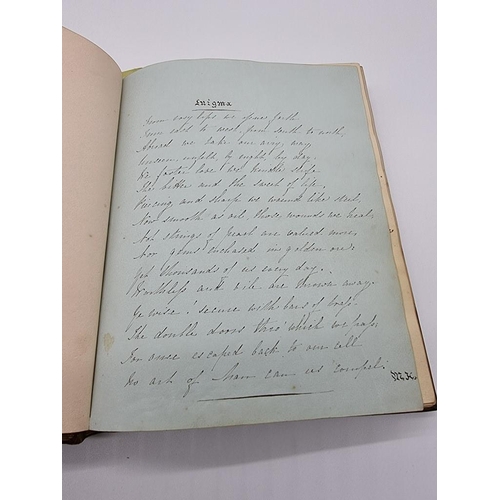 Enigma
From rosy lips we issue forth
From east to west, from south to north,
Abroad we take our airy way
Unseen, unfelt, by night, by day.
We foster love we kindle strife
The bitter and the sweet of life,
Piercing and sharp we wound like steel,
Now smooth as oil, those wounds we heal,
Not strings of pearl are valued more,
Nor gems enchased in golden ore
Yet thousands of us every day,
Worthless and vile are thrown away.
Ye wise! secure with bars of brass
The double doors thro' which we pass
For once escaped back to our cell
No art of Man can us compel.
M.K.